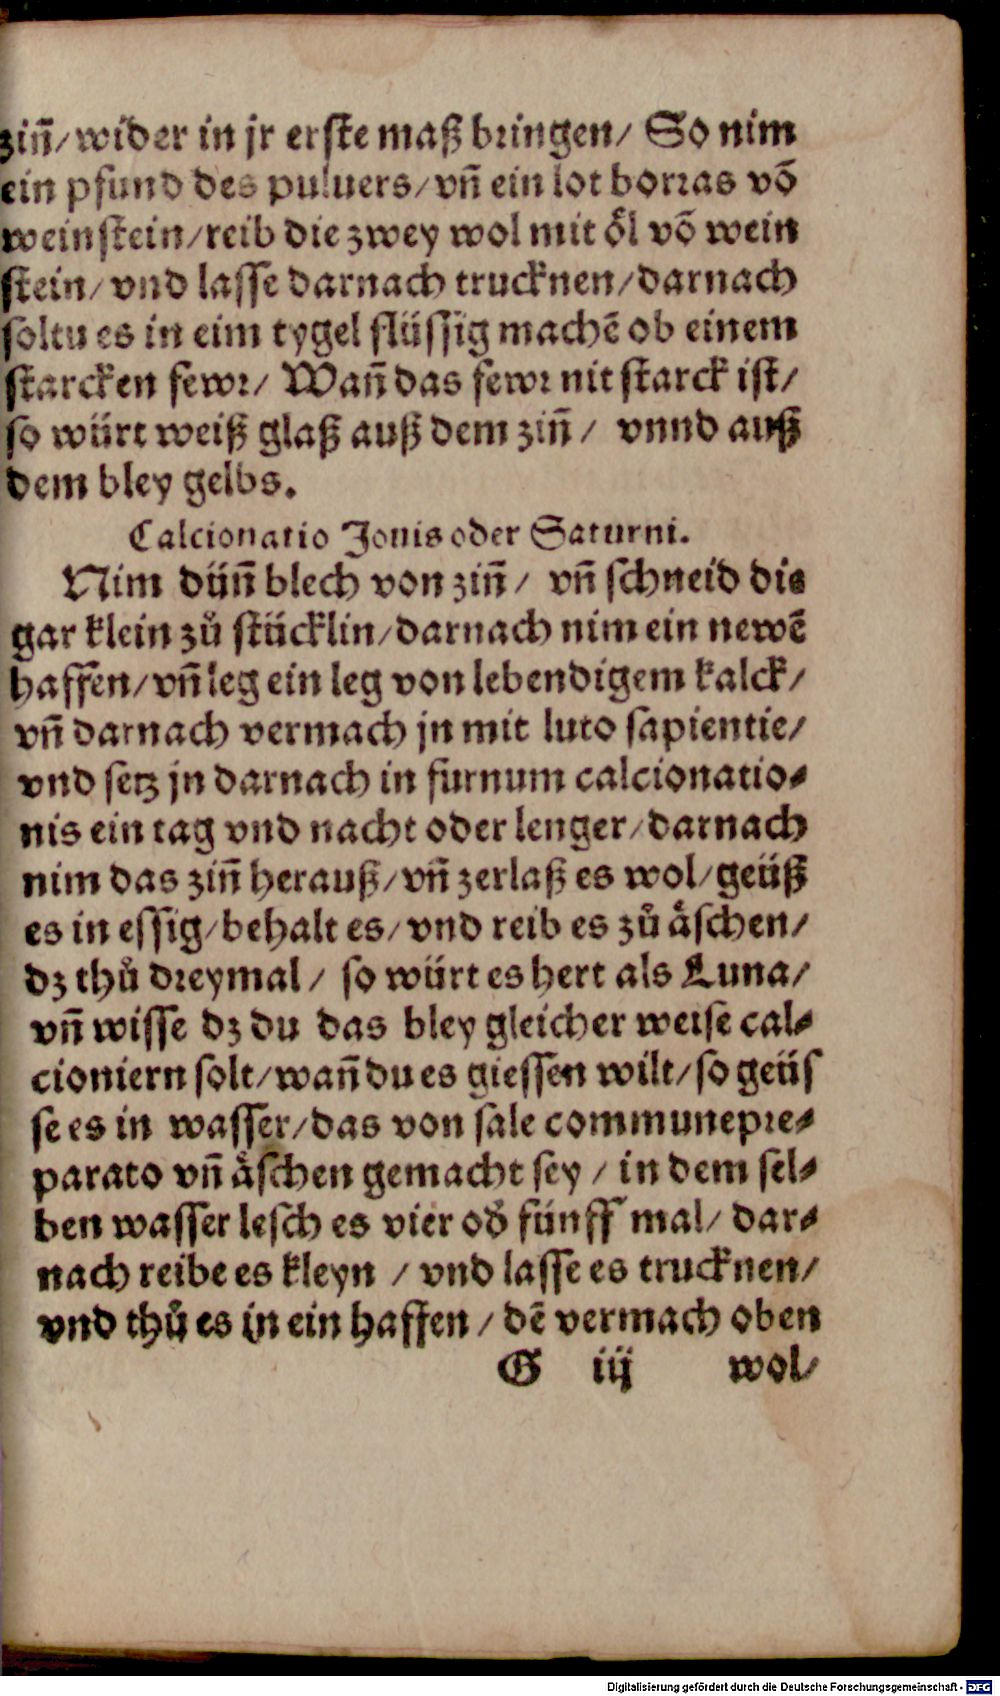 zin̄/wider in jr erste maß bringen/ So nim
ein pfund des puluers/vn̄ ein lot borras vō
weinstein/reib die zwey wol mit oͤl vō wein
stein/ vnd lasse darnach trucknen/darnach
soltu es in eim tygel flüssig machē ob einem
starcken fewr/ Wan̄ das fewr nit starck ist/
so würt weiß glaß auß dem zin̄ / vnnd auß
dem bley gelbs.
Calcionatio Jouis oder Saturni.
Nim dün̄ blech von zin̄ / vn̄ schneid die
gar klein zuͦ stücklin/darnach nim ein newē
haffen/vn̄ leg ein leg von lebendigem kalck/
vn̄ darnach vermach jn mit luto sapientie/
vnd setz jn darnach in furnum calcionatio⸗
nis ein tag vnd nacht oder lenger/darnach
nim das zin̄ herauß/vn̄ zerlaß es wol/geüß
es in essig/behalt es/vnd reib es zuͦ aͤschen/
dz thuͦ dreymal / so würt es hert als Luna/
vn̄ wisse dz du das bley gleicher weise cal⸗
cioniern solt/wan̄ du es giessen wilt/so geüs
se es in wasser/das von sale communepre⸗
parato vn̄ aͤschen gemacht sey / in dem sel⸗
ben wasser lesch es vier od̄ fünff mal/ dar⸗
nach reibe es kleyn / vnd lasse es trucknen/
vnd thuͦ es in ein haffen / dē vermach oben
G iij wol/
Digitalisierung gefördert durch die Deutsche Forschungsgemeinschaft - DFG